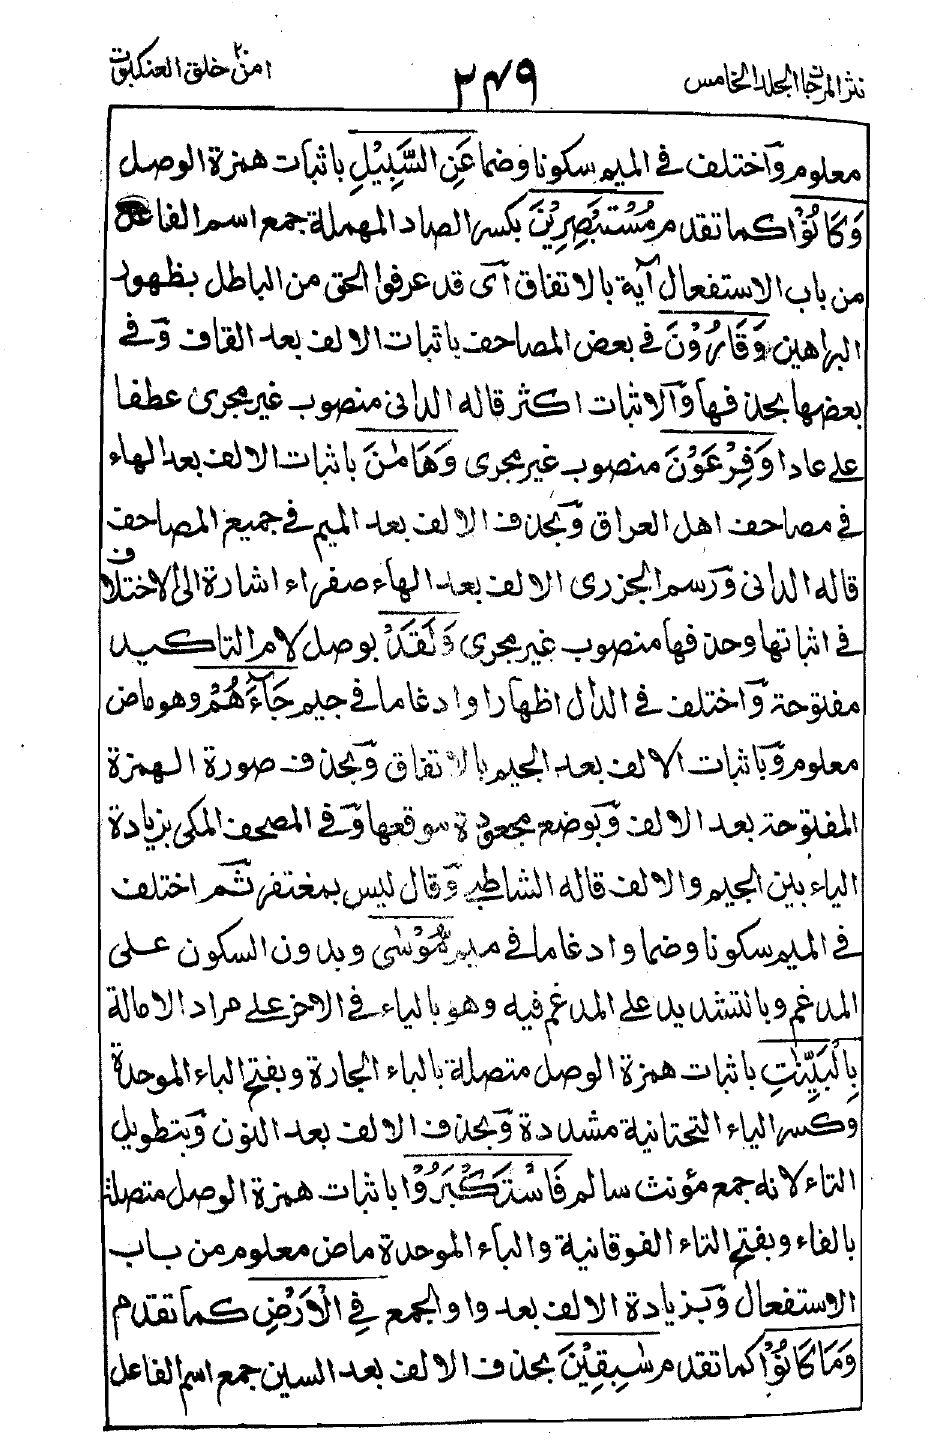 نثر المرجان المجلد الخامس
٢٤٩
امن خلق ٢٠ العنكبوت
معلوم وٓاختلف فى الميم سكونا وضما عَنِ السَّبِيْلِ باثبات همزة الوصل
وَكَانُوْا كما تقدم مُسْتَبْصِرِيْنَ بكسر الصاد المهملة جمع اسم الفاعل
من باب الاستفعال آية بالاتفاق آى قد عرفوا الحق من الباطل بظهور
البراهين وَقَارُوْنَ فى بعض المصاحف باثبات الالف بعد القاف وٓفى
بعضها بحذفها وٓالاثبات اكثر قاله الدانى منصوب غير مجرى عطفا
على عادا وَفِرْعَوْنَ منصوب غير مجرى وَهَامٰنَ باثبات الالف بعد الهاء
فى مصاحف اهل العراق وٓبحذف الالف بعد الميم فى جميع المصاحف
قاله الدانى وٓرسم الجزرى الالف بعد الهاء صفراء اشارة الى الاختلاف
فى اثباتها وحذفها منصوب غير مجرى وَلَقَدْ بوصل لام التاكيد
مفتوحة وٓاختلف فى الدال اظهارا وادغاما فى جيم جَآءَهُمْ وهو ماض
معلوم وٓباثبات الالف بعد الجيم بالاتفاق وٓبحذف صورة الهمزة
المفتوحة بعد الالف وٓبوضع مجعودة موقعها وٓفى المصحف المكى بزيادة
الياء بين الجيم والالف قاله الشاطبى وٓقال ليس بمغتفر ثم اختلف
فى الميم سكونا وضما وادغاما فى ميم مُّوْسٰى وبدون السكون على
المدغم وبالتشديد على المدغم فيه وهو بالياء فى الاخر على مراد الامالة
بِالْبَيِّنٰتِ باثبات همزة الوصل متصلة بالباء الجارة وبفتح الباء الموحدة
وكسر الياء التحتانية مشددة وٓبحذف الالف بعد النون وٓبتطويل
التاء لانه جمع مؤنث سالم فَاسْتَكْبَرُوْا باثبات همزة الوصل متصلة
بالفاء وبفتح التاء الفوقانية والباء الموحدة ماض معلوم من باب
الاستفعال وٓبزيادة الالف بعد واو الجمع فِى الْاَرْضِ كما تقدم
وَمَا كَانُوْا كما تقدم سٰبِقِيْنَ بحذف الالف بعد السين جمع اسم الفاعل